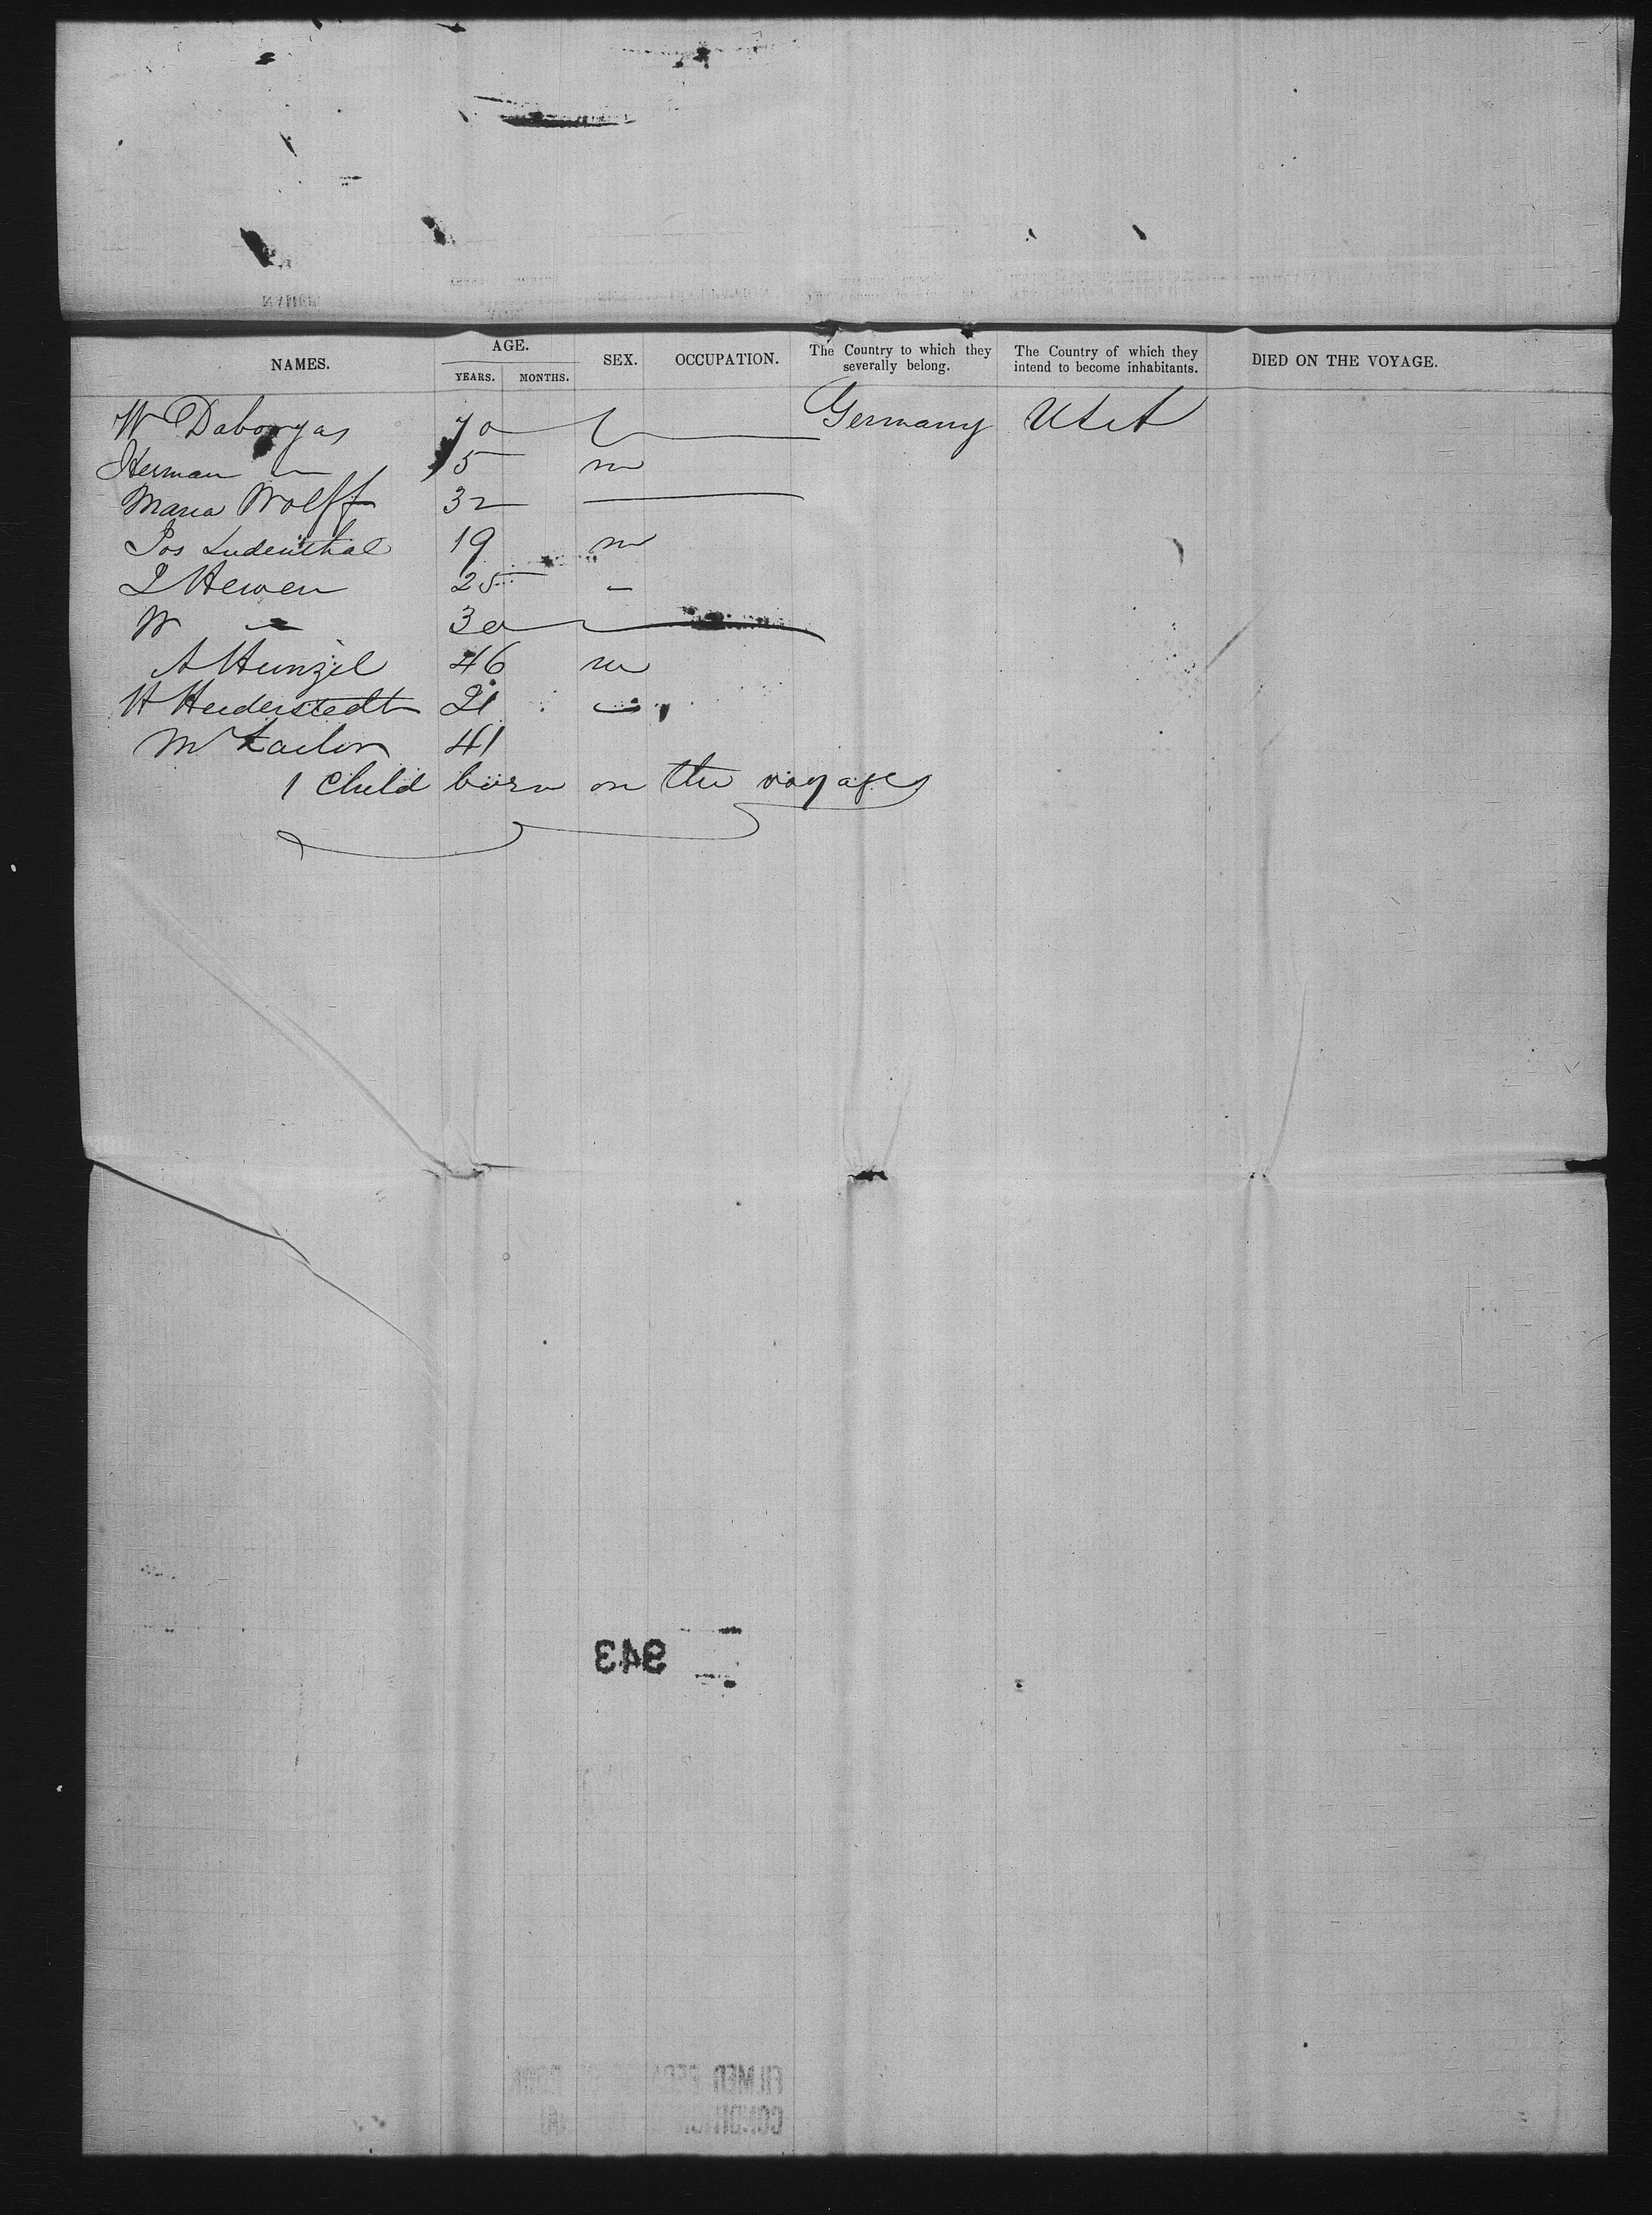 NAMES. AGE. SEX. OCCUPATION. The Country to which they severally belong. The Country of which they intend to become inhabitants. DIED ON THE VOYAGE.
YEARS. MONTHS.
W Daborgas 70 Germany USA
Herman 5 m
Maria Wolff 32
Jos Ludenthal 19 m
L Hewen 25 -
W 30
A Hunzel 46 m
H Heiderstedt 21
M 41
1 Child born on the voyage
943